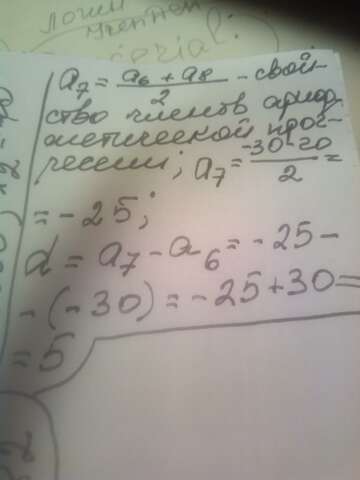 ложи
учтен
cezial:
a₇ = (a₆ + a₈)/2 - свой-
ство членов ариф
метической прог-
рессии; a₇ = (-30-20)/2 =
= -25;
d = a₇ - a₆ = -25 -
- (-30) = -25+30=
= 5